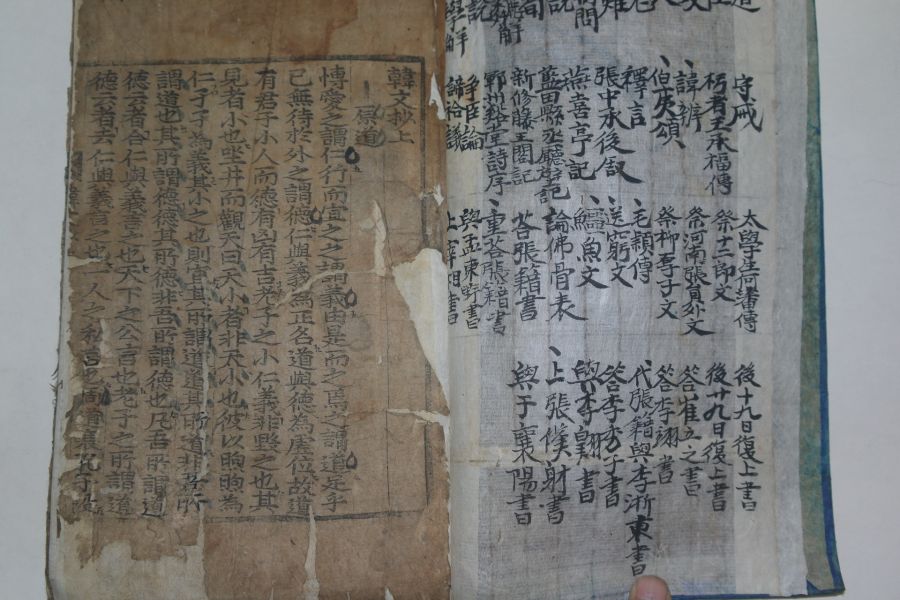 守戒 太學生何蕃傳 後十九日復上書
朽者王承福傳 祭十二郎文 後廿九日復上書
諱辨 祭河南張員外文 答崔立之書
伯夷頌 祭柳子厚文 答李翊書
釋言 毛穎傳 代張籍與李浙東書
張中丞後敘 送窮文 答李秀才書
燕喜亭記 鱷魚文 與李翱書
藍田縣丞廳壁記 論佛骨表 上張僕射書
新修滕王閣記 答張籍書 與于襄陽書
鄆州谿堂詩序 重答張籍書
爭臣論 與孟東野書
學解 禘祫議 上宰相書
韓文抄上
原道
博愛之謂仁行而宜之之謂義由是而之焉之謂道足乎
己無待於外之謂德仁與義爲定名道與德爲虛位故道
有君子小人而德有凶有吉老子之小仁義非毀之也其
見者小也坐井而觀天曰天小者非天小也彼以煦煦爲
仁孑孑爲義其小之也則宜其所謂道道其所道非吾所
謂道也其所謂德德其所德非吾所謂德也凡吾所謂道
德云者合仁與義言之也天下之公言也老子之所謂道
德云者去仁與義言之也一人之私言也周道衰孔子没